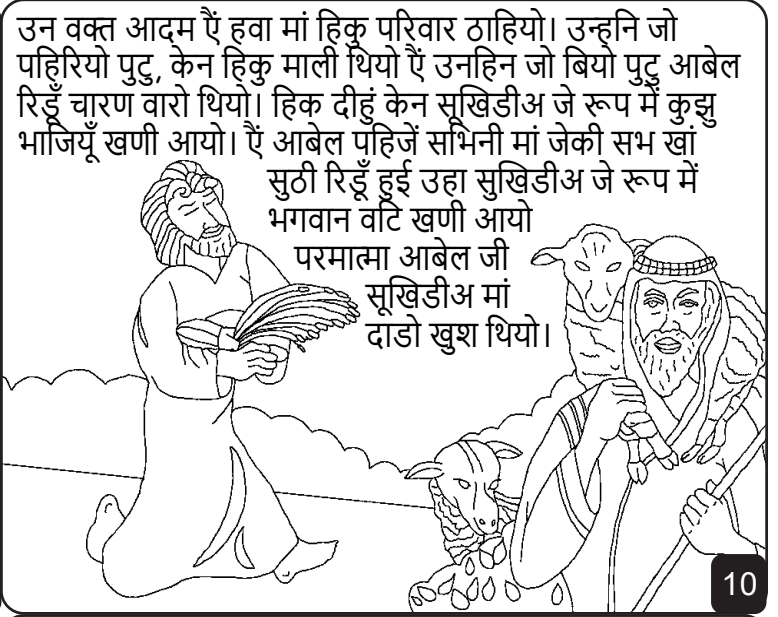 उन वक्त आदम ऐं हवा मां हिकु परिवार ठाहियो। उन्हनि जो
पहिरियो पुटु, केन हिकु माली थियो ऐं उनहिन जो बियो पुटु आबेल
रिडूँ चारण वारो थियो। हिक दीहुं केन सूखिडीअ जे रूप में कुझु
भाजियूँ खणी आयो। ऐं आबेल पहिजें सभिनी मां जेकी सभ खां
सुठी रिडूँ हुई उहा सुखिडीअ जे रूप में
भगवान वटि खणी आयो
परमात्मा आबेल जी
सूखिडीअ मां
दाडो खुश थियो।
10